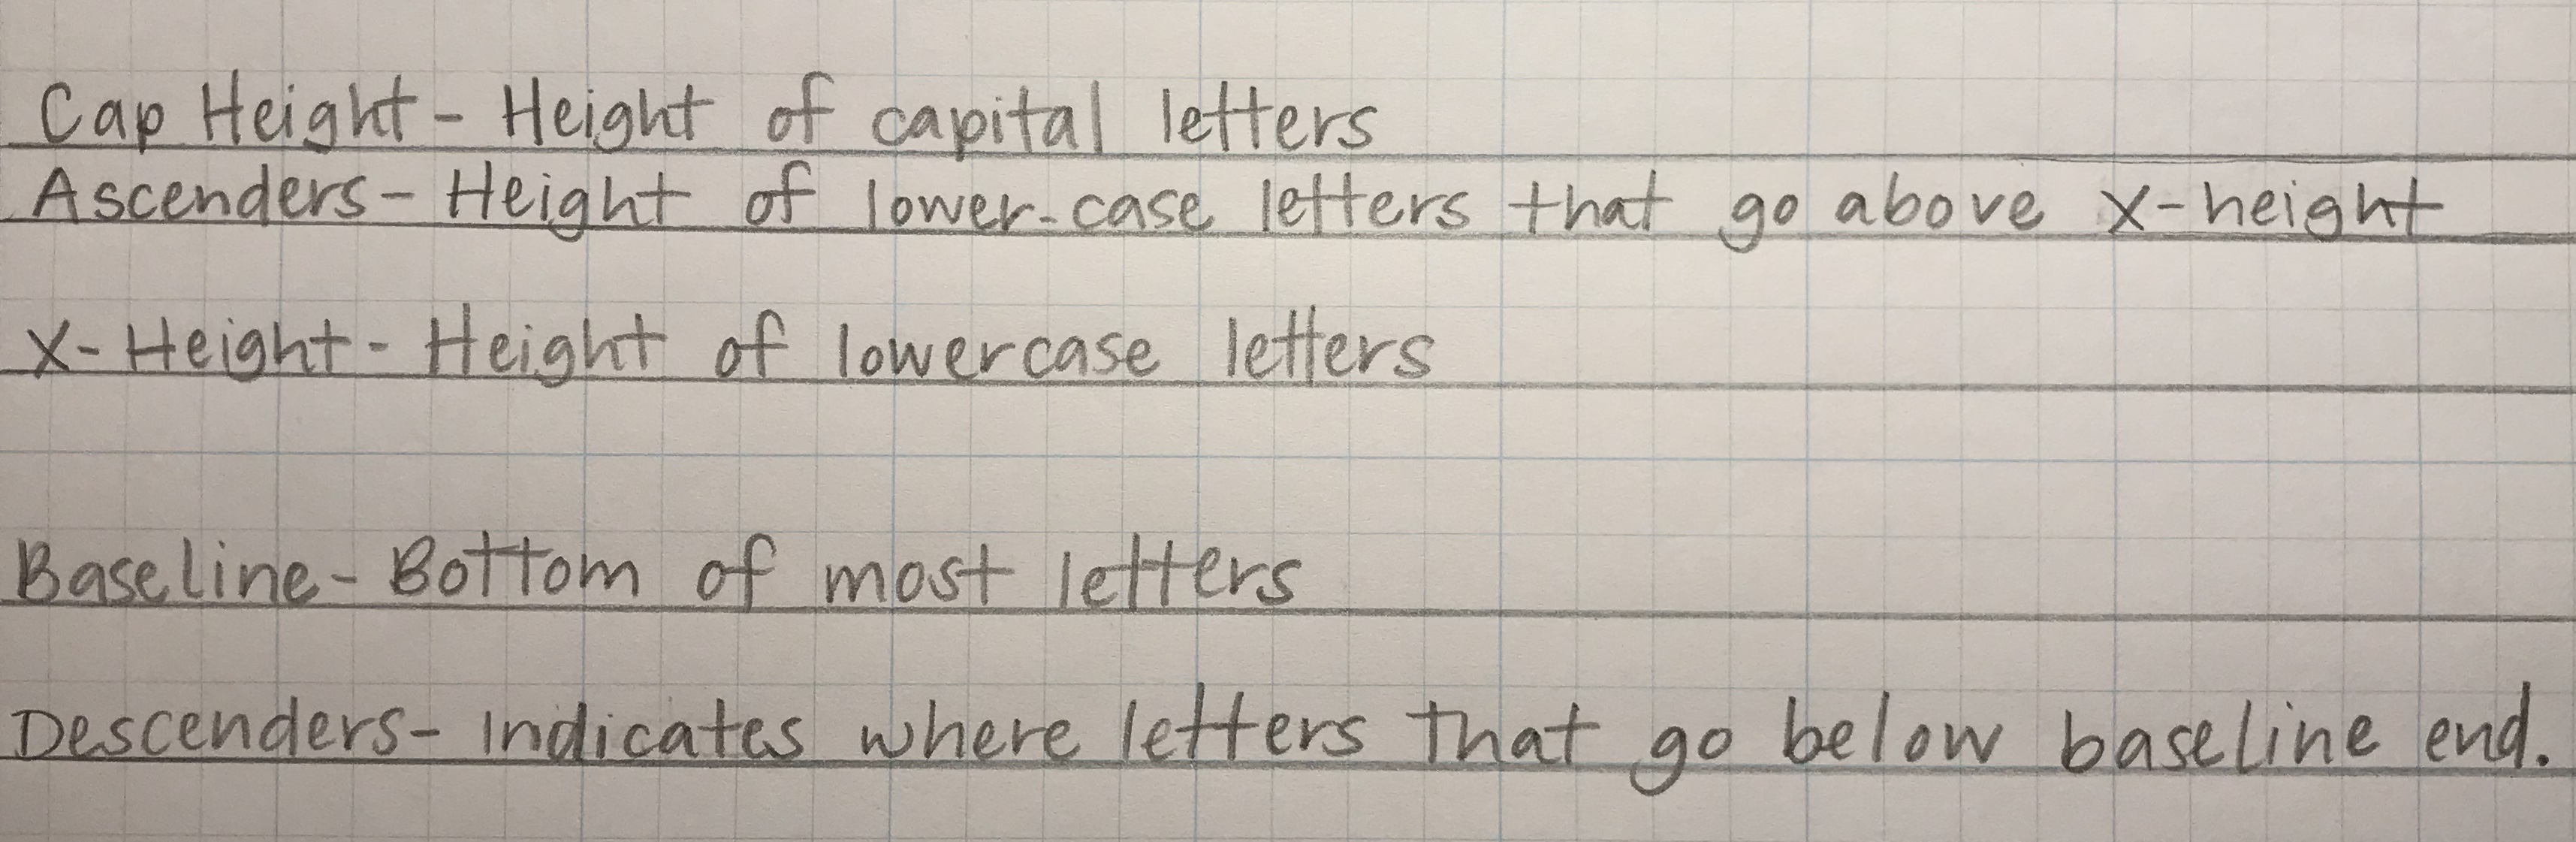 Cap Height - Height of capital letters
Ascenders - Height of lower-case letters that go above x-height
X-Height - Height of lowercase letters
Baseline - Bottom of most letters
Descenders - indicates where letters that go below baseline end.